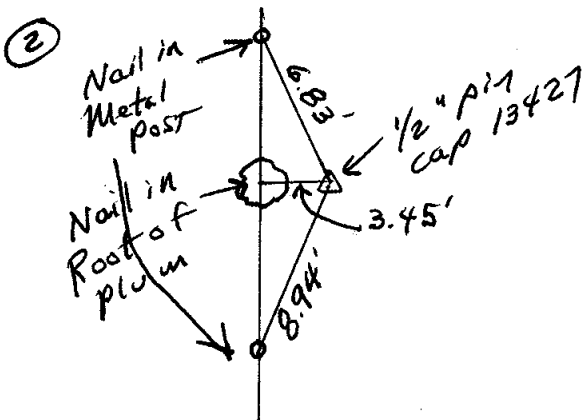 2
Nail in
Metal
post
6.83'
1/2" pin
cap 13427
Nail in
Root of
plum
3.45'
8.94'